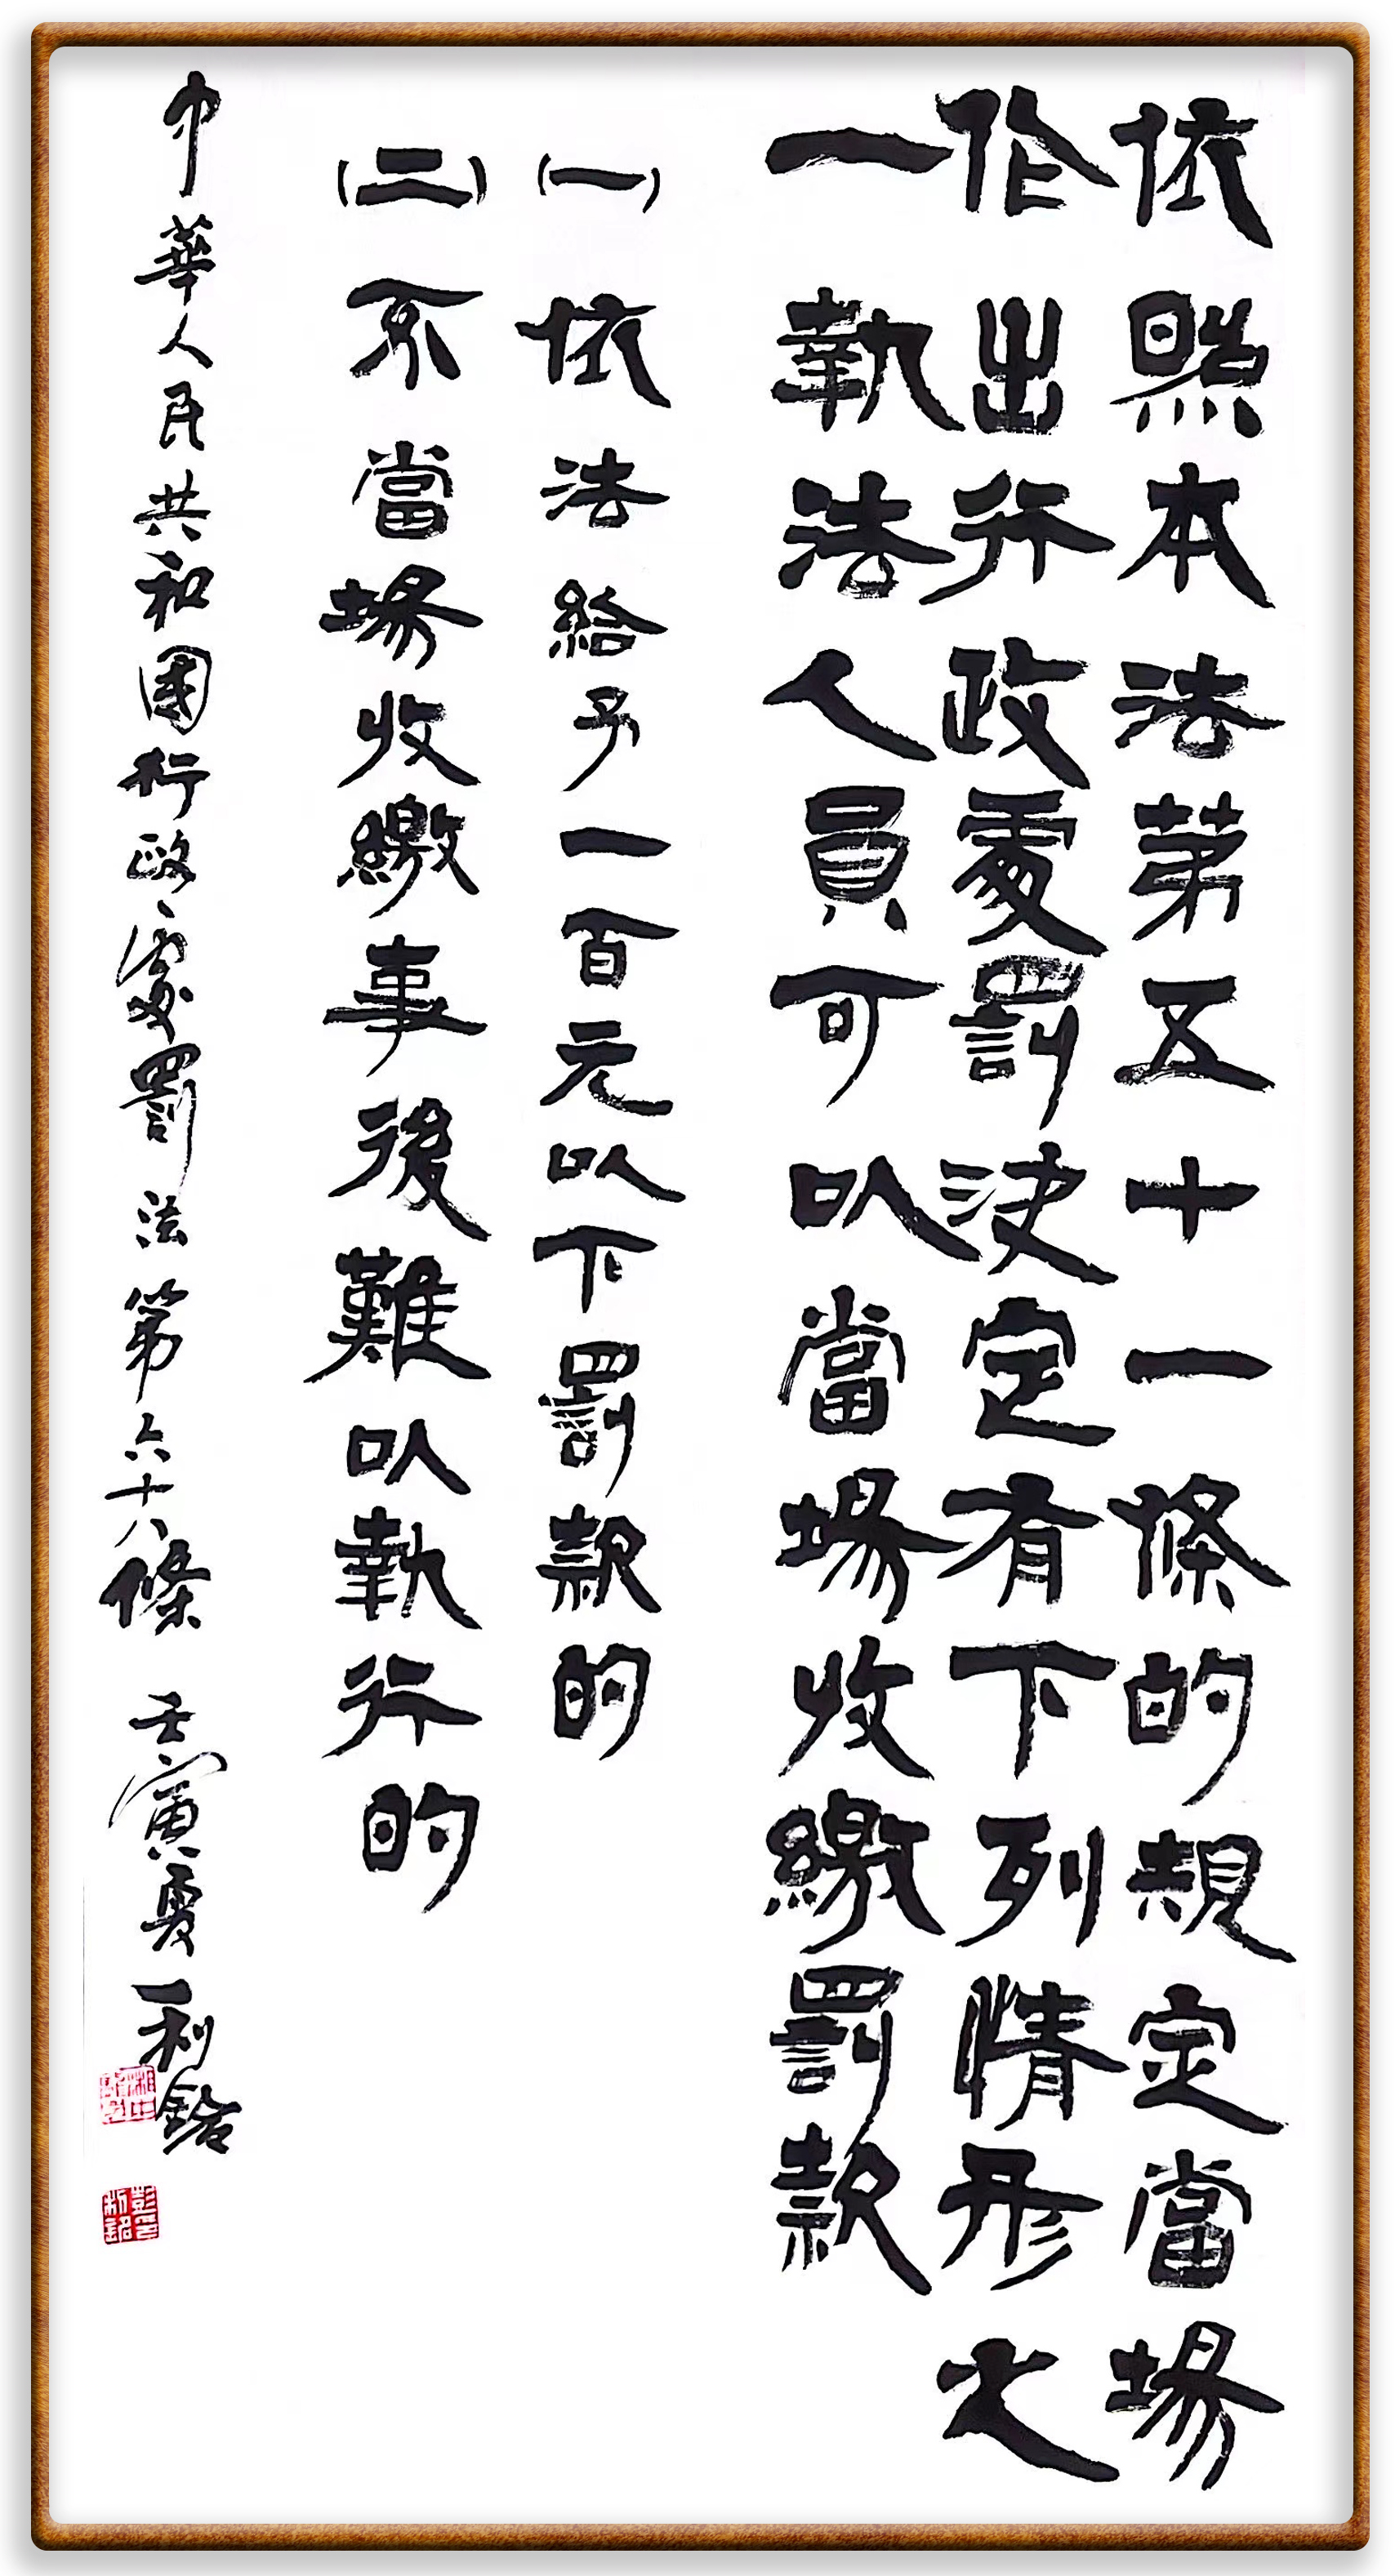 依照本法第五十一條的規定當場
作出行政處罰決定有下列情形之
一執法人員可以當場收繳罰款
(一)依法給予一百元以下罰款的
(二)不當場收繳事後難以執行的
中華人民共和國行政處罰法第六十八條 壬寅夏 利銘